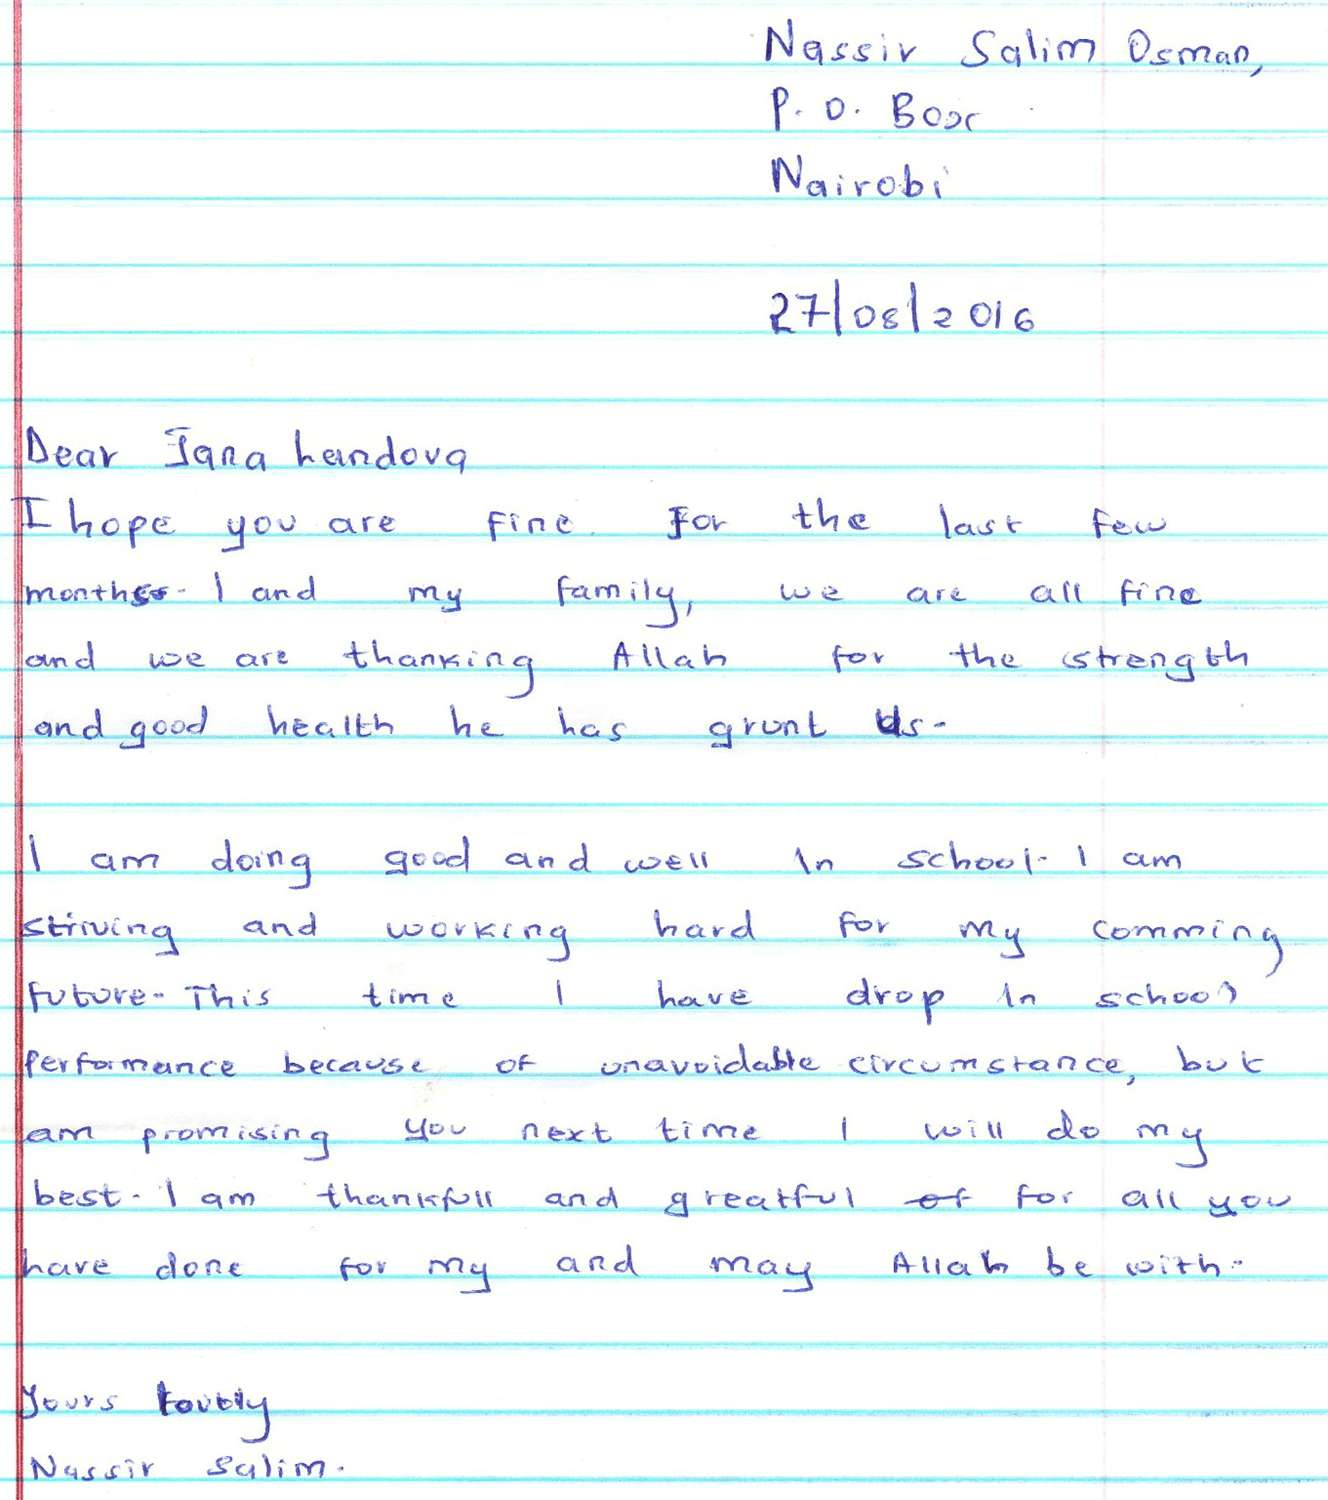 Nassir Salim Osman,
P. O. Box
Nairobi
27/08/2016
Dear Jana handova
I hope you are fine. For the last few
months. I and my family, we are all fine
and we are thanking Allah for the strength
and good health he has grunt Us.
I am doing good and well In school. I am
striving and working hard for my comming
future. This time I have drop In school
performance because of unavoidable circumstance, but
am promising you next time I will do my
best. I am thankfull and greatful of for all you
have done for my and may Allah be with.
Yours
Nassir Salim.